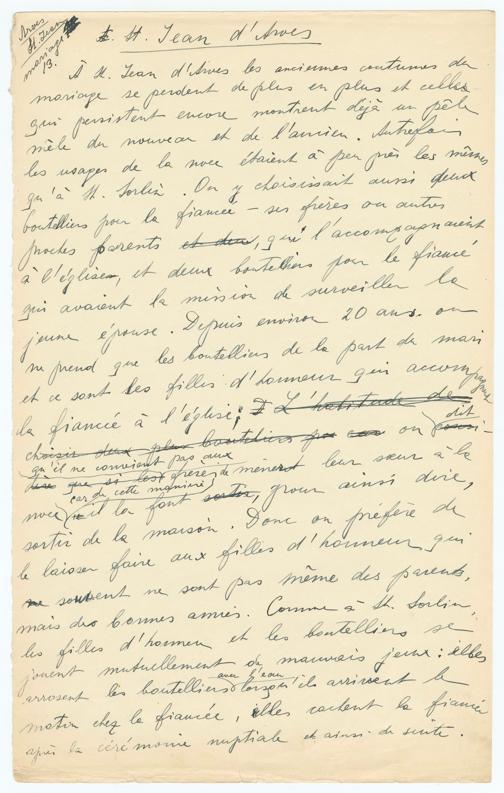 Arves
St. Jean
mariage
13.
St. Jean d'Arves
À St. Jean d'Arves les anciennes coutumes de
mariage se perdent de plus en plus et celles
qui persistent encore montrent déjà un pêle
mêle du nouveau et de l'ancien. Autrefois
les usages de la noce étaient à peu près les mêmes
qu'à St. Sorlin. On y choisissait aussi deux
boutelliers pour la fiancée – ses frères ou autres
proches parents et deux, qui l'accompagnaient
à l'église, et deux boutelliers pour le fiancé
qui avaient la mission de surveiller la
jeune épouse. Depuis environ 20 ans on
ne prend que les boutelliers de la part du mari
et ce sont les filles d'honneur qui accompagnent
la fiancée à l'église; L'habitude de
choisir deux plus boutelliers on dit
qu'il ne convient pas aux
dire que si les frères de mènent leur sœur à la
car de cette manière
noce il la font sortir, pour ainsi dire,
sortir de la maison. Donc on préfère de
le laisser faire aux filles d'honneur, qui
souvent ne sont pas même des parents,
mais des bonnes amies. Comme à St. Sorlin,
les filles d'honneur et les boutelliers se
jouent mutuellement de mauvais jeux: elles
avec l'eau
arrosent les boutelliers lorsqu'ils arrivent le
matin chez la fiancée, elles cachent la fiancée
après la cérémonie nuptiale et ainsi de suite.